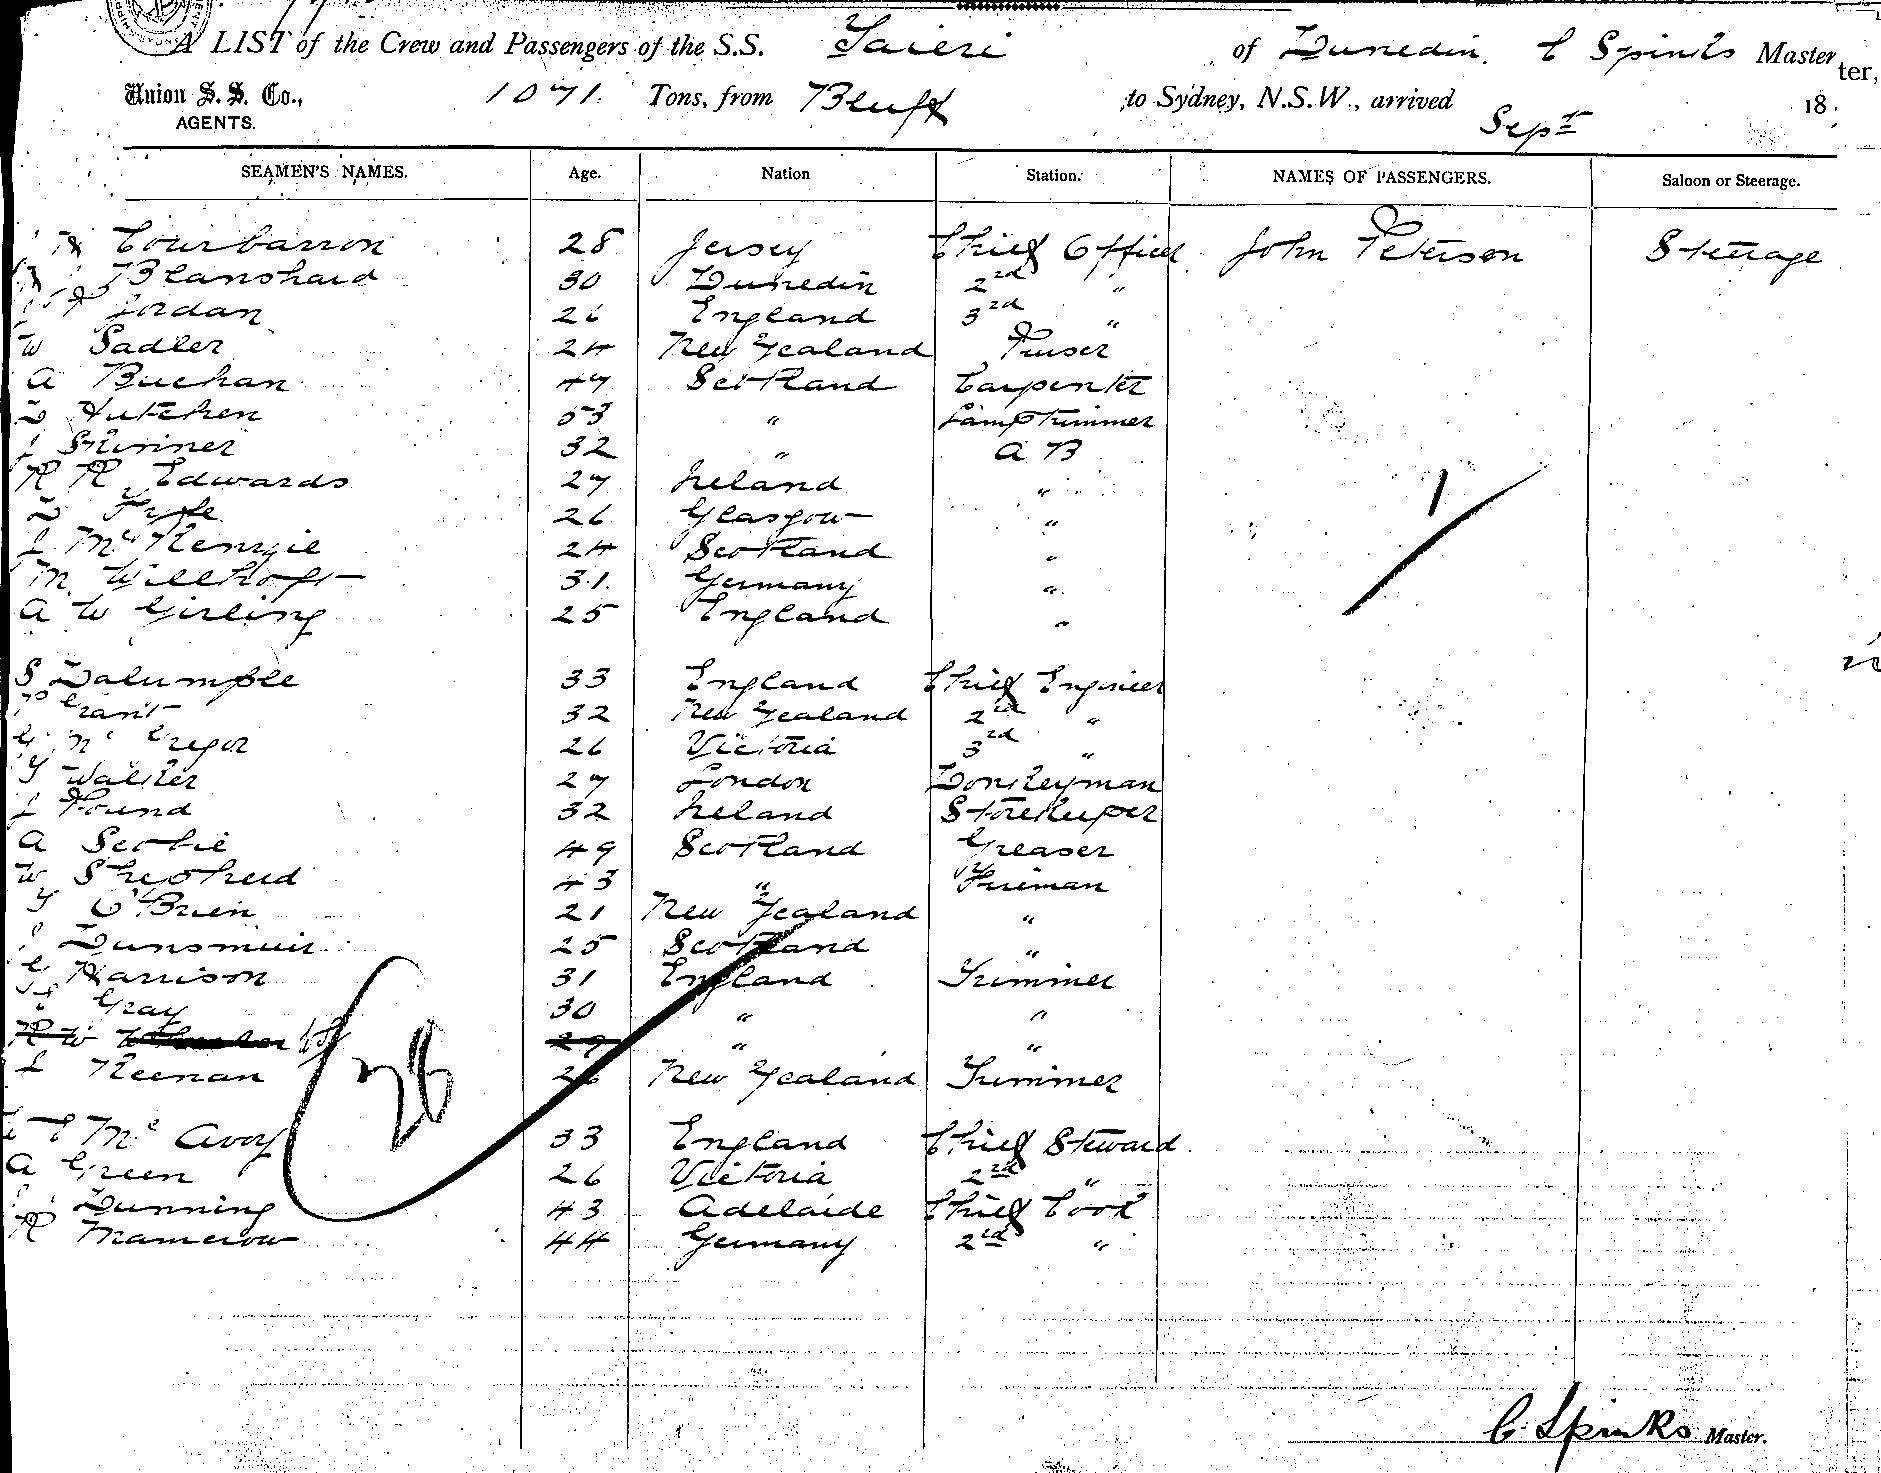 A LIST of the Crew and Passengers of the S.S. Taieri of Dunedin. C Spinks Master
ter,
Union S. S. Co., 1071. Tons, from Bluff to Sydney, N.S.W., arrived Sept 18
AGENTS.
SEAMEN'S NAMES. Age. Nation Station. NAMES OF PASSENGERS. Saloon or Steerage.
Courbarron 28 Jersey Chief Officer John Peterson Steerage
Blanshard 30 Dunedin 2nd "
Jordan 26 England 3rd "
W Sadler 24 New Zealand Purser
A Buchan 47 Scotland Carpenter
D Hutchen 53 " Lamptrimmer
J Skinner 32 " A B
R R Edwards 27 Ireland "
D Fyfe 26 Glasgow "
J McKenzie 24 Scotland "
M Willhoft 31. Germany "
A W Girling 25 England "
S Dalrumple 33 England Chief Engineer
Grant 32 New Zealand 2nd "
G McGregor 26 Victoria 3rd "
Walker 27 London Donkeyman
J Pound 32 Ireland Storekeeper
A Scobie 49 Scotland Greaser
W Shepherd 43 " Fireman
O'Brien 21 New Zealand "
Dunsmuir 25 Scotland "
Harrison 31 England Trimmer
Gray 30 " "
R W 29 " "
J Keenan 26 New Zealand Trimmer
28
McAvoy 33 England Chief Steward
A Green 26 Victoria 2nd "
Dunning 43 Adelaide Chief Cook
R Mamerow 44 Germany 2nd "
1
C. Spinks Master.